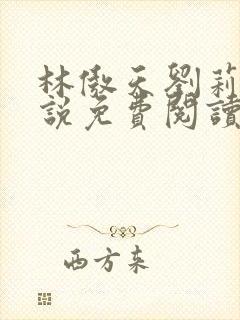 林傲天劉莉
說免費閱讀
西方来